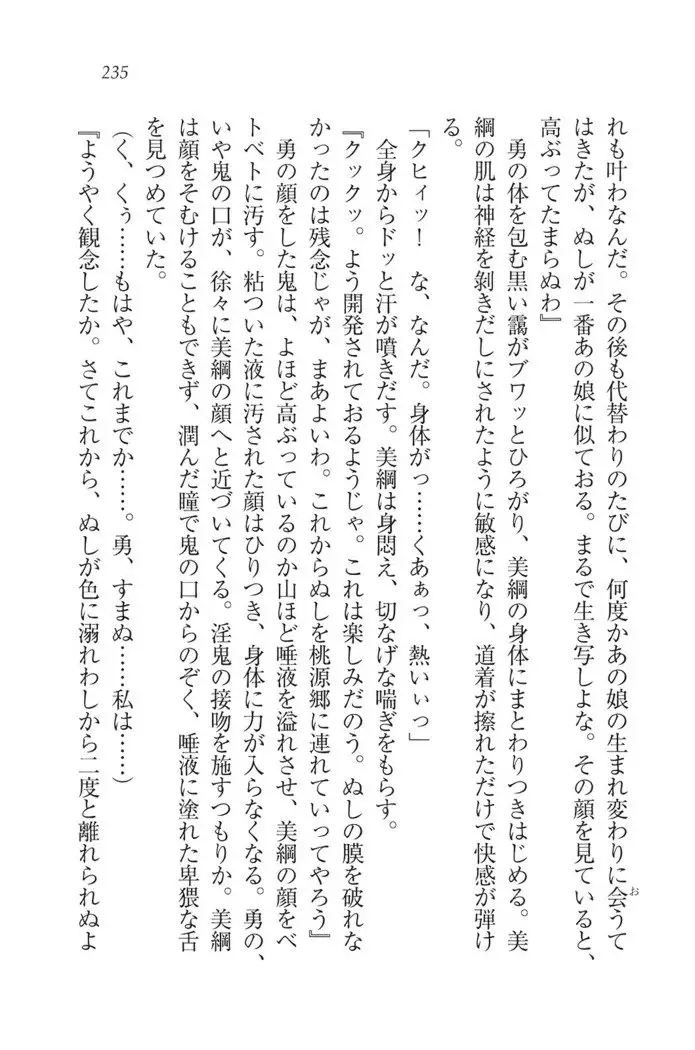 235
れも叶わなんだ。その後も代替わりのたびに、何度かあの娘の生まれ変わりに会うて
お
はきたが、ぬしが一番あの娘に似ておる。まるで生き写しよな。その顔を見ていると、
高ぶってたまらぬわ』
　勇の体を包む黒い靄がブワッとひろがり、美綱の身体にまとわりつきはじめる。美
綱の肌は神経を剝きだしにされたように敏感になり、道着が擦れただけで快感が弾け
る。
「クヒィッ！　な、なんだ。身体がっ……くあぁっ、熱いぃっ」
　全身からドッと汗が噴きだす。美綱は身悶え、切なげな喘ぎをもらす。
『クックッ。よう開発されておるようじゃ。これは楽しみだのう。ぬしの膜を破れな
かったのは残念じゃが、まあよいわ。これからぬしを桃源郷に連れていってやろう』
　勇の顔をした鬼は、よほど高ぶっているのか山ほど唾液を溢れさせ、美綱の顔をベ
トベトに汚す。粘ついた液に汚された顔はひりつき、身体に力が入らなくなる。勇の、
いや鬼の口が、徐々に美綱の顔へと近づいてくる。淫鬼の接吻を施すつもりか。美綱
は顔をそむけることもできず、潤んだ瞳で鬼の口からのぞく、唾液に塗れた卑猥な舌
を見つめていた。
（く、くぅ……もはや、これまでか……。勇、すまぬ……私は……）
『ようやく観念したか。さてこれから、ぬしが色に溺れわしから二度と離れられぬよ